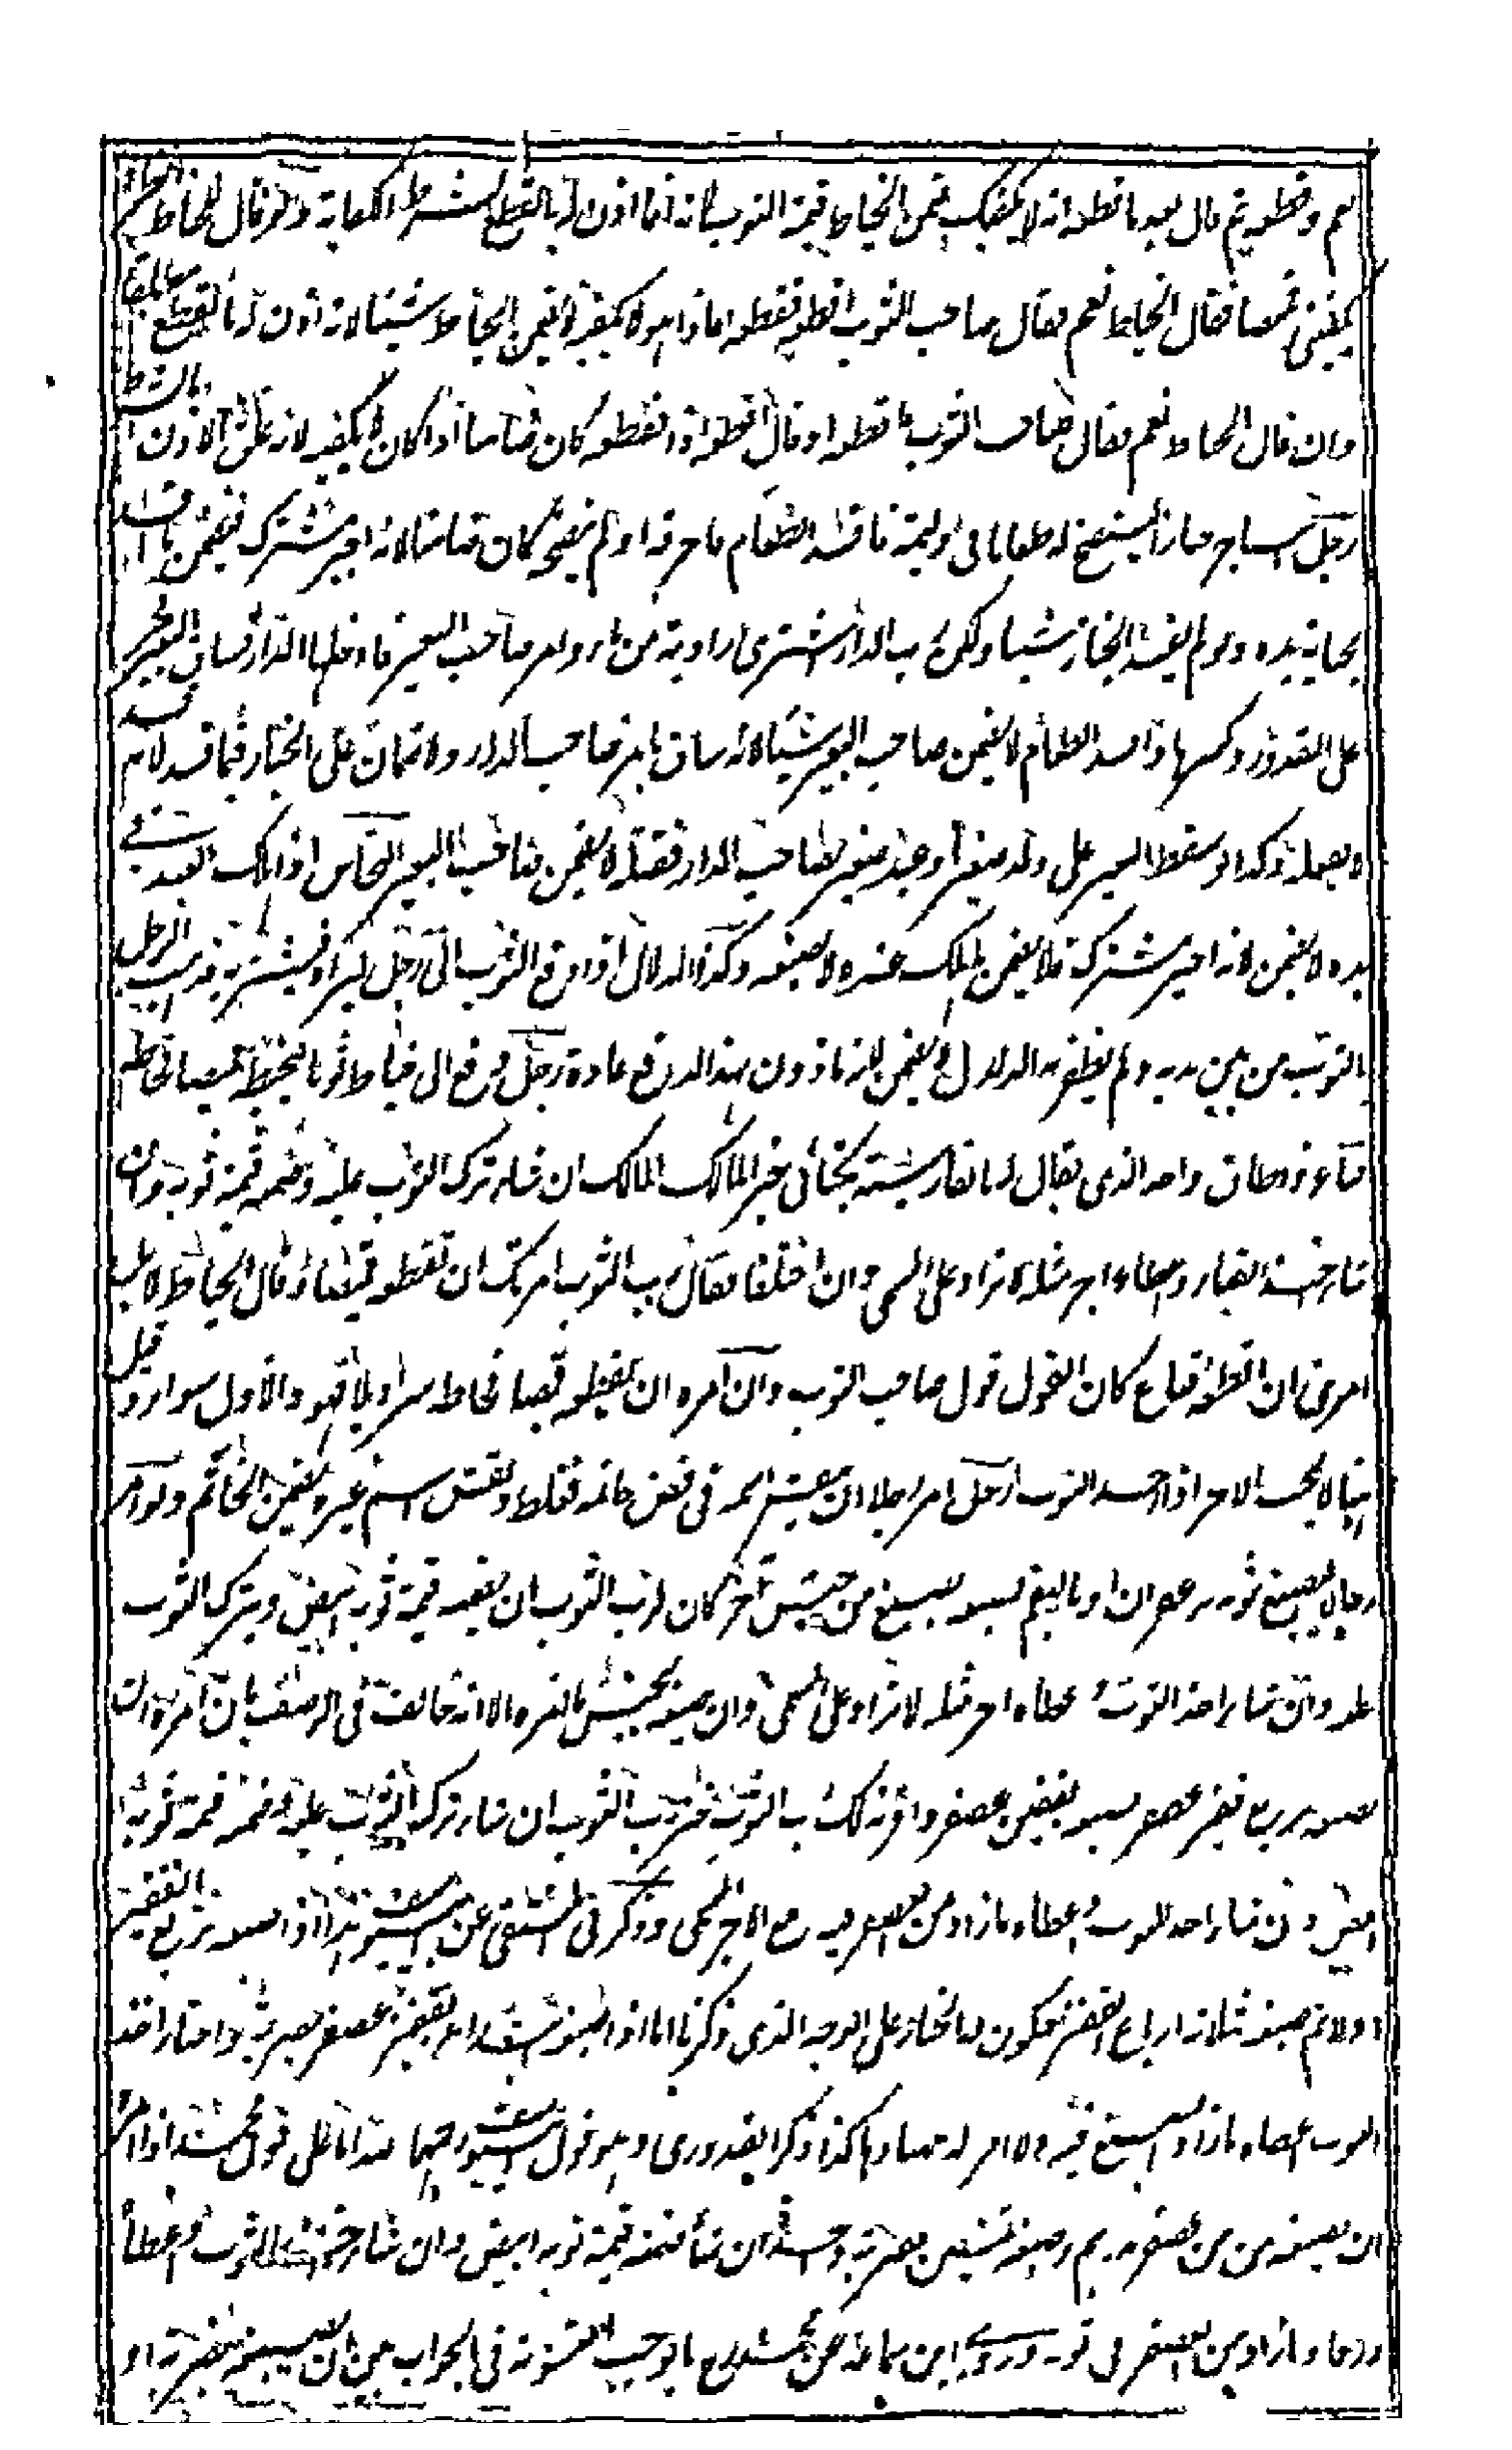 نعم وقطعه ثم قال بعد ما قطعه انه لا يكفيك ضمن الخياط قيمة الثوب لانه انما اذن له بالقطع بشرط الكفاية ولو قال للخياط انظر
يكفيني قميصا فقال الخياط نعم فقال صاحب الثوب اقطعه فقطعه فاذا هو لا يكفيه لا يضمن الخياط شيئا لانه اذن له بالقطع مطلقا
وان قال الخياط نعم فقال صاحب الثوب فاقطعه او قال اقطعه اذا فقطعه كان ضامنا اذا كان لا يكفيه لانه علق الاذن بالشرط
رجل استاجر خبازا ليطبخ له طعاما في وليمة فافسد الطعام فاحرقه او لم ينضجه كان ضامنا لانه اجير مشترك فيضمن ما افسد
بجناية يده ولو لم يفسد الخباز شيئا ولكن رب الدار اشترى راوية من ماء وامر صاحب البعير فادخلها الدار فساق البعير فخر
على القدور وكسرها وافسد الطعام لا يضمن صاحب البعير شيئا لانه ساق بامر صاحب الدار ولا ضمان على الخباز فيما فسد لانه لم يفسد
بعمله وكذا لو سقط البعير على ولد صغير او عبد صغير لصاحب الدار فقتله لا يضمن صاحب البعير النخاس اذا هلك العبد في
يده لا يضمن لانه اجير مشترك فلا يضمن بهلك عنده لا بصنعه وكذا الدلال اذا دفع الثوب الى رجل ليراه فيشتريه فذهب الرجل
بالثوب من بين يديه ولم يظفر به الدلال لا يضمن لانه ماذون بهذا الدفع عادة رجل دفع الى خياط ثوبا ليخيطه قميصا فخاطه
قباء ذو طاق واحد الذي يقال له بالفارسية يكتائي خير المالك ان شاء ترك الثوب عليه وضمنه قيمة ثوبه وان
شاء اخذ القباء واعطاه اجر مثله لا يزاد على المسمى وان اختلفا فقال رب الثوب امرتك ان تقطعه قميصا وقال الخياط لا بل
امرتني ان اقطعه قباء كان القول قول صاحب الثوب وان امره ان يقطعه قميصا فخاطه سراويلا فهو والاول سواء وقيل
ههنا لا يجب الاجر اذا اخذ الثوب رجل امر رجلا ان ينقش اسمه في فص خاتمه فغلط ونقش اسم غيره يضمن الخاتم ولو امر
رجلا ليصبغ ثوبه بزعفران او بالبقم فصبغه بصبغ من جنس آخر كان لرب الثوب ان يضمنه قيمة ثوبه ابيض ويترك الثوب
عليه وان شاء اخذ الثوب واعطاه اجر مثله لا يزاد على المسمى وان صبغه بجنس ما امره الا انه خالف في الوصف بان امره ان
يصبغه بربع قفيز عصفر فصبغه بقفيز عصفر واقر بذلك رب الثوب خير رب الثوب ان شاء ترك الثوب عليه وضمنه قيمة ثوبه
ابيض وان شاء اخذ الثوب واعطاه ما زاد من العصفر فيه مع الاجر المسمى وذكر في المنتقى عن ابي يوسف هذا اذا صبغه بربع القفيز
اولا ثم صبغه ثلاثة ارباع القفيز فيكون له الخيار على الوجه الذي ذكرنا اما اذا صبغه ابتداء بقفيز عصفر بضربة واختار اخذ
الثوب اعطاه ما زاد الصبغ فيه ولا اجر له هكذا ذكر القدوري وهو قول ابي يوسف رحمهما الله اما على قول محمد اذا امره
ان يصبغه بمن من عصفر بدرهم وصبغه بمنين بضربة واحدة ان شاء ضمنه قيمة ثوبه ابيض وان شاء اخذ الثوب واعطاه
درهما وما زاد من العصفر في ثوبه وروى ابن سماعة عن محمد ما يوجب التسوية في الجواب بين ان يصبغه بضربة او